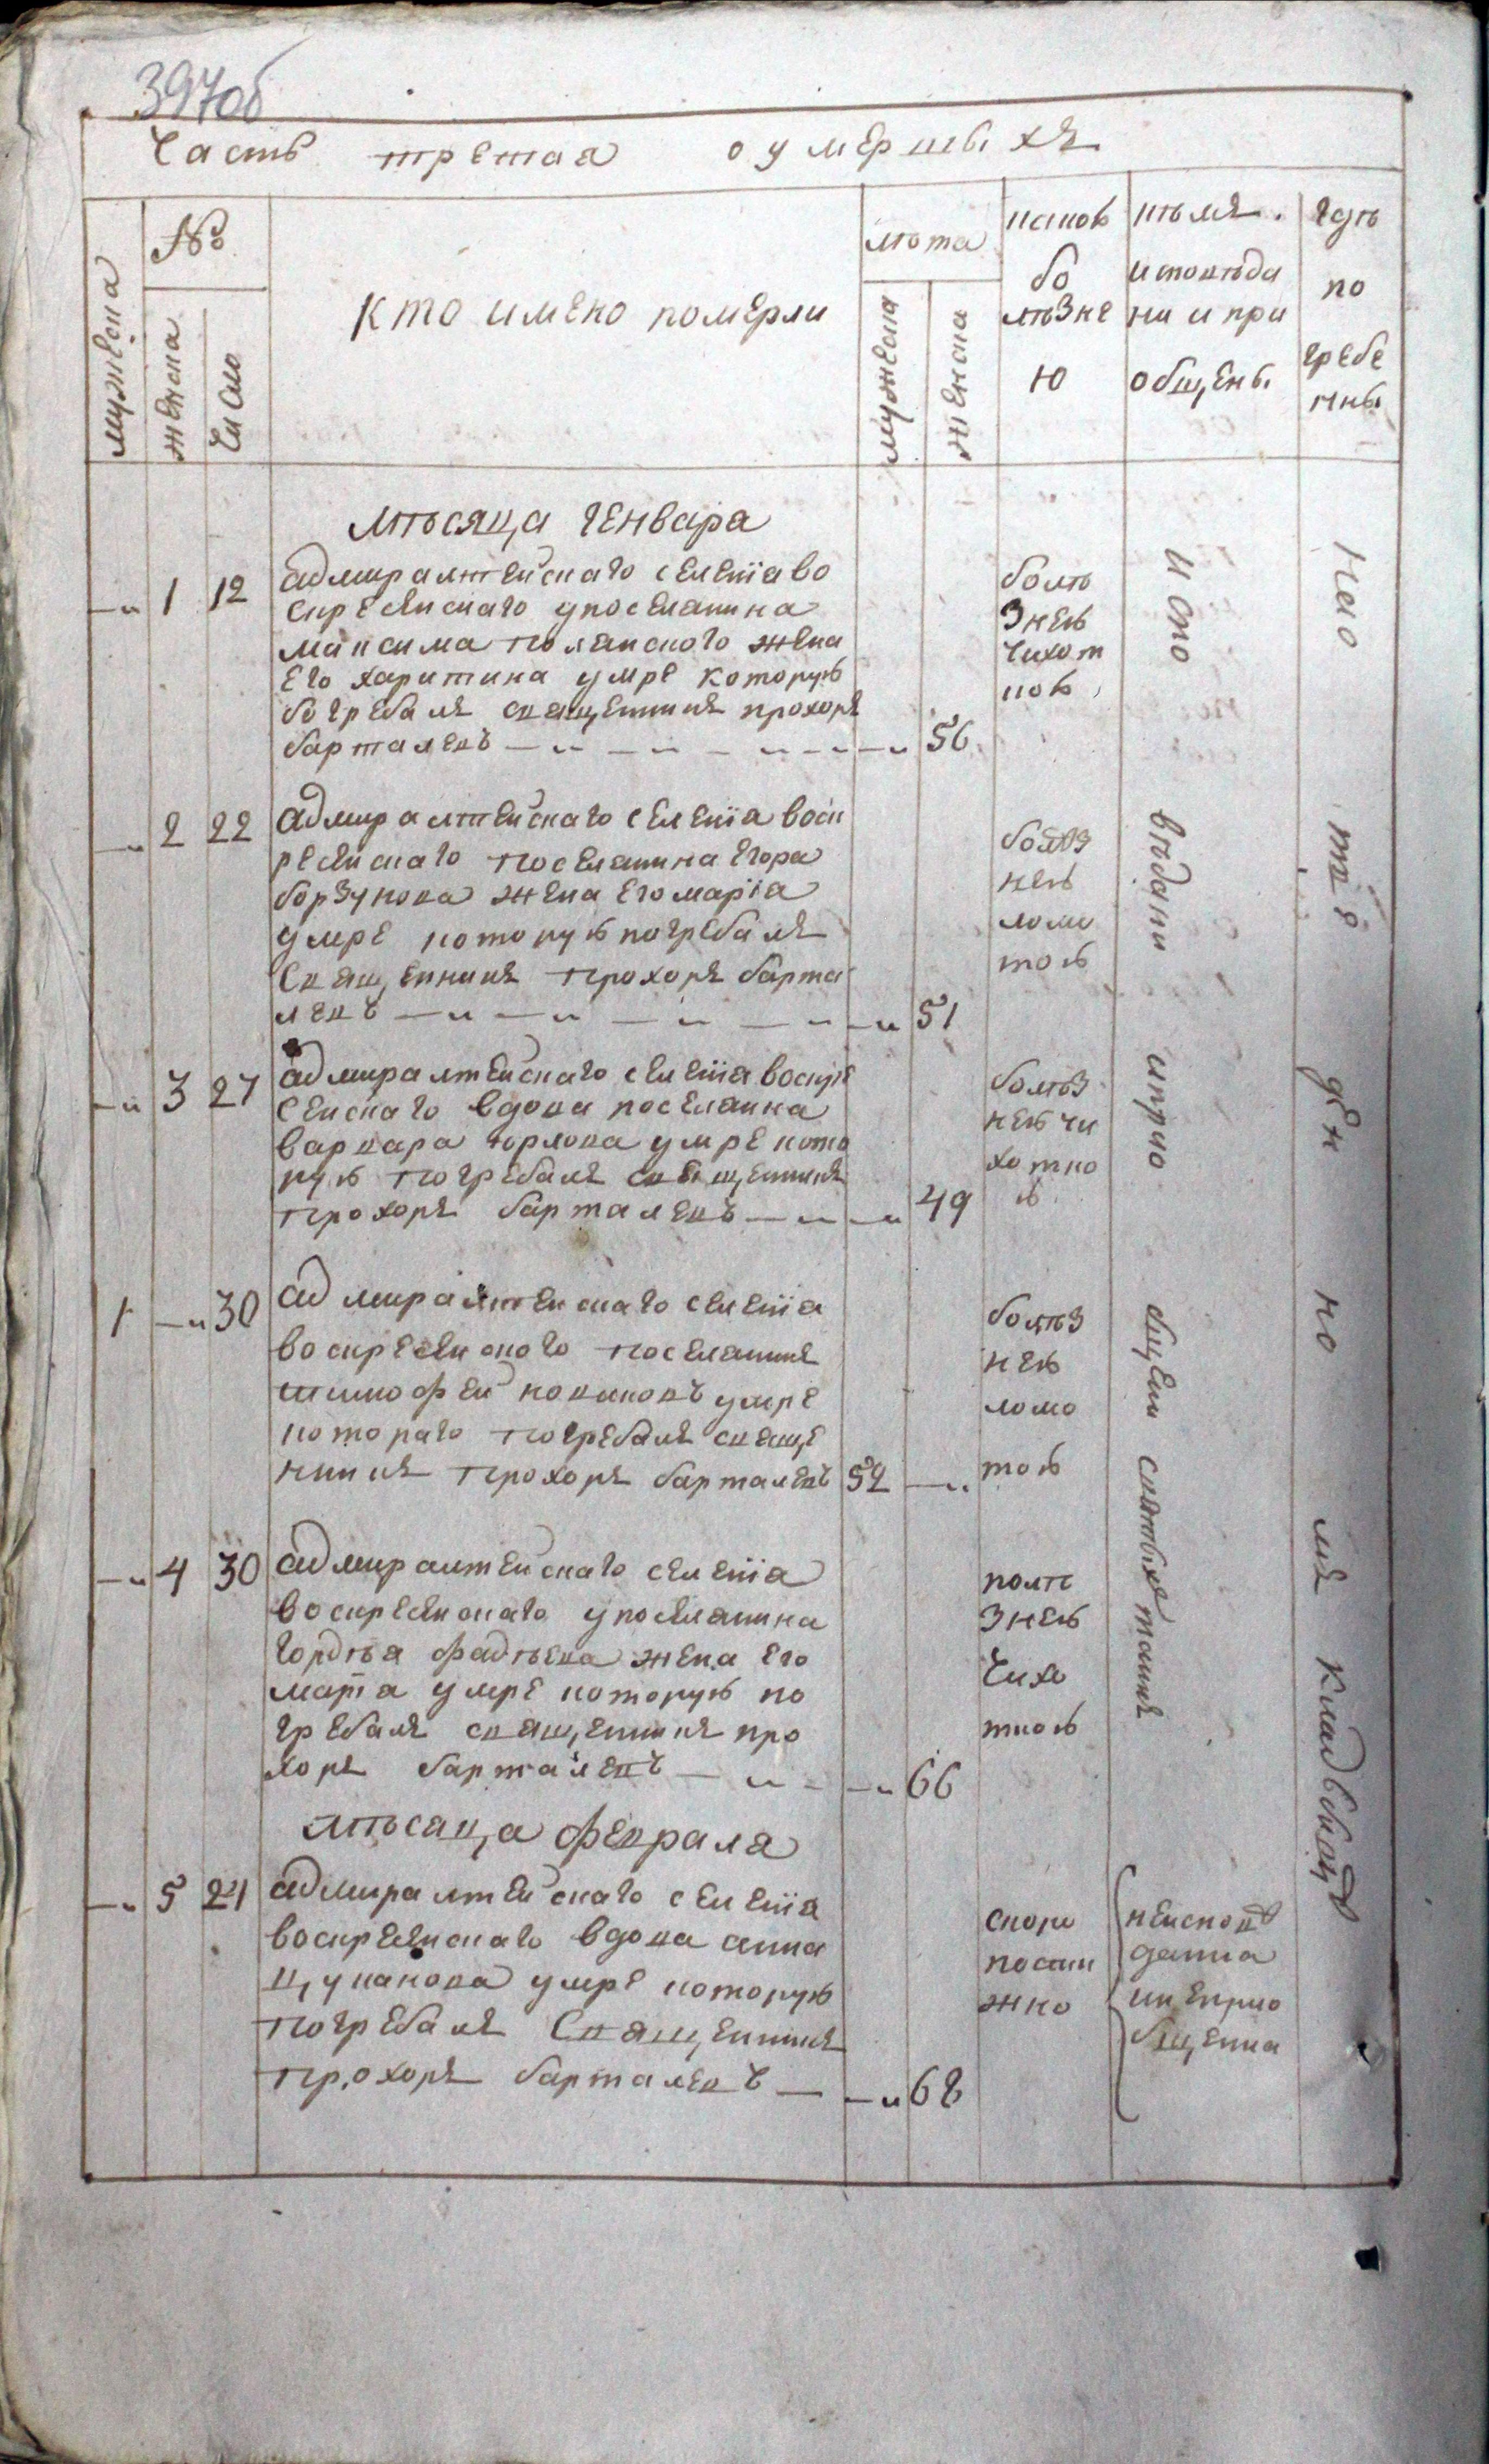 397об
Часть третая о умершыхъ
мужеска
№
женска
число
кто имено померли
лѣта
мужеска
женска
какою
бо
лѣзне
ю
кѣмъ
исповѣда
ни и при
общены
гдѣ
по
гребе
нны
мѣсяца генваря
1 12
адмиралтейскаго селенїа во
скресенскаго у поселанина
максима полянского жена
его харитина умре которую
богребалъ священникъ прохоръ
барталевъ
56
болѣ
знею
чихот
ною
2 22
адмиралтейскаго селенїа воск
ресенскаго поселанина егора
борзукова жена его марїа
умре которую погребалъ
священникъ прохоръ барта
левъ
51
болѣз
нею
ломо
тою
3 27
адмиралтейскаго селенїа воскре
сенскаго вдова поселанка
варвара орлова умре кото
рую погребалъ священникъ
прохоръ барталевъ
49
болѣз
нею чи
хотно
ю
1 30
адмиралтейскаго селенїа
воскресенского поселанинъ
тимофей новиковъ умре
котораго погребалъ свяще
нникъ прохоръ барталевъ
52
болѣз
нею
ломо
тою
4 30
адмиралтейскаго селенїа
воскресенскаго у поселанина
гордѣя фадѣева жена его
марѳа умре которую по
гребалъ священникъ про
хоръ барталевъ
66
полѣ
знею
чихо
тною
мѣсаца февраля
5 21
адмиралтейскаго селенїа
воскресенскаго вдова анна
цуканова умре которую
погребалъ Священникъ
прохоръ барталевъ
68
скоро
пости
жно
неисповѣ
данна
и неприо
бщенна
испо вѣдани ипрїо бщени святыхъ таинъ
на о тве де н но мъ кладбищѣ